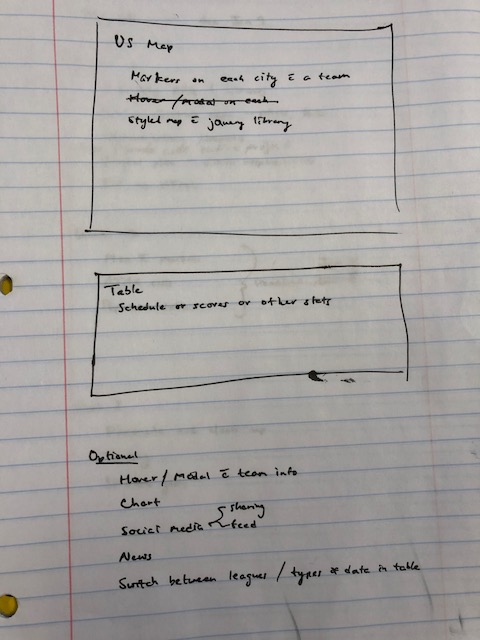 US Map
Markers on each city c̄ a team
Hover / Modal on each
Styled map c̄ jquery library
Table
Schedule or scores or other stats
Optional
Hover / Modal c̄ team info
Chart
Social media sharing
feed
News
Switch between leagues / types of data in table